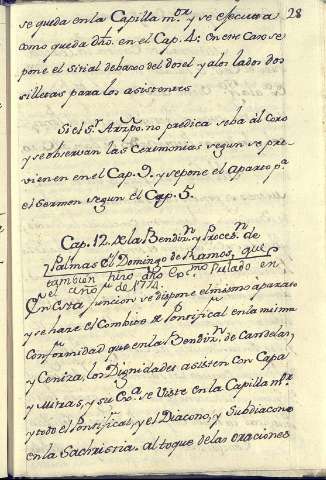 28
se queda en la Capilla m.ᵒʳ y se efectua
como queda dho. en el Cap. 4: en este Caso se
pone el sitial debaxo del dosel y a los lados dos
silletas para los asistentes
Si el S.ʳ Arzpo. no predica se ba al Coro
y se observan las Ceremonias segun se pre-
vienen en el Cap. 9. y se pone el aparato p.ᵃ
el Sermon segun el Cap. 5.
Cap. 12. de la Bendiz.ⁿ y Proces.ⁿ de
Palmas el Domingo de Ramos, que
tambien hizo dho Ex.ᵐᵒ Prelado en
el año de 1774.
En esta funcion se dispone el mismo aparato
y se hace el Combite de Pontifical en la misma
Conformidad que en la Bendiz.ⁿ de Candelas,
y Ceniza, los Dignidades asisten con Capa
y Mitras, y su Ex.ᵃ se Viste en la Capilla m.ᵒʳ
y todo el Pontifical, y el Diacono, y Subdiacono
en la Sachristia. al toque de las oraciones